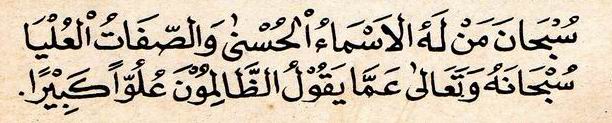 سُبْحَانَ مَنْ لَهُ الاَسْمَاءُ الْحُسْنىٰ وَالصِّفَاتُ الْعُلْيَا
سُبْحَانَهُ وَتَعَالىٰ عَمَّا يَقُوْلُ الظَّالِمُوْنَ عُلُوّاً كَبِيْرًا.